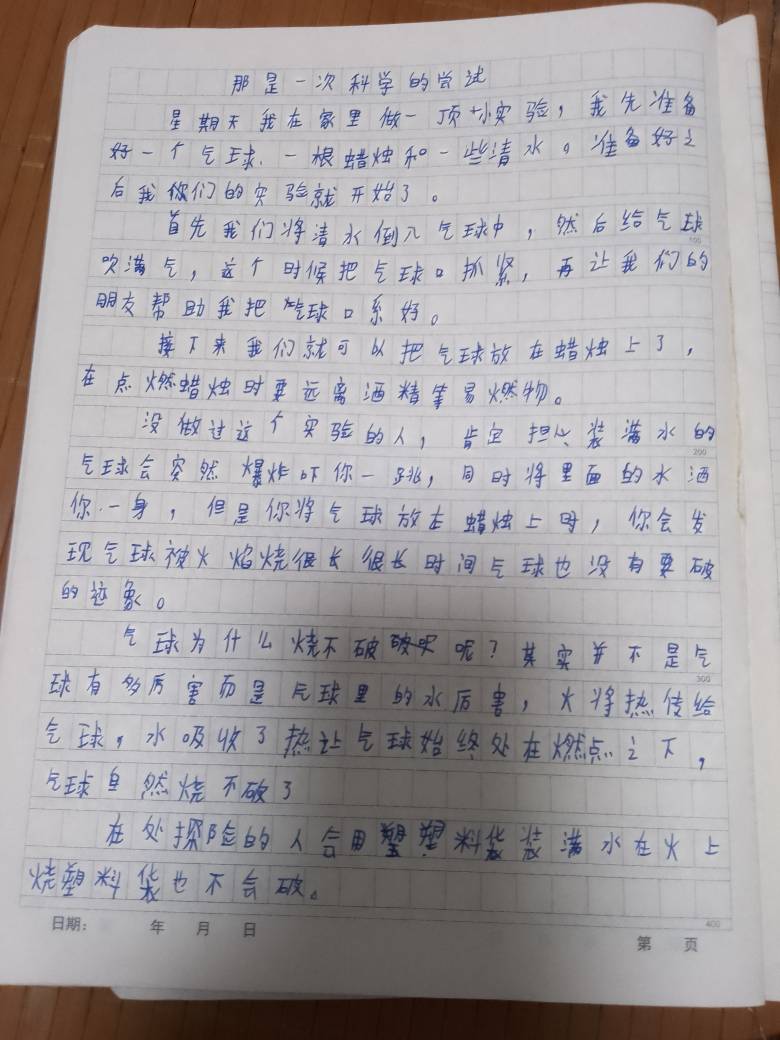 那是一次科学的尝试
星期天我在家里做一项小实验，我先准备
好一个气球、一根蜡烛和一些清水。准备好之
后我们的实验就开始了。
首先我们将清水倒入气球中，然后给气球
100
吹满气，这个时候把气球口抓紧，再让我们的
朋友帮助我把气球口系好。
接下来我们就可以把气球放在蜡烛上了，
在点燃蜡烛时要远离酒精等易燃物。
没做过这个实验的人，肯定担心装满水的
200
气球会突然爆炸吓你一跳，同时将里面的水洒
你一身，但是你将气球放在蜡烛上时，你会发
现气球被火焰烧很长很长时间气球也没有要破
的迹象。
气球为什么烧不破呢？其实并不是气
300
球有多厉害而是气球里的水厉害，火将热传给
气球，水吸收了热让气球始终处在燃点之下，
气球自然烧不破了
在处探险的人会用塑料袋装满水在火上
烧塑料袋也不会破。
400
日期： 年 月 日
第 页